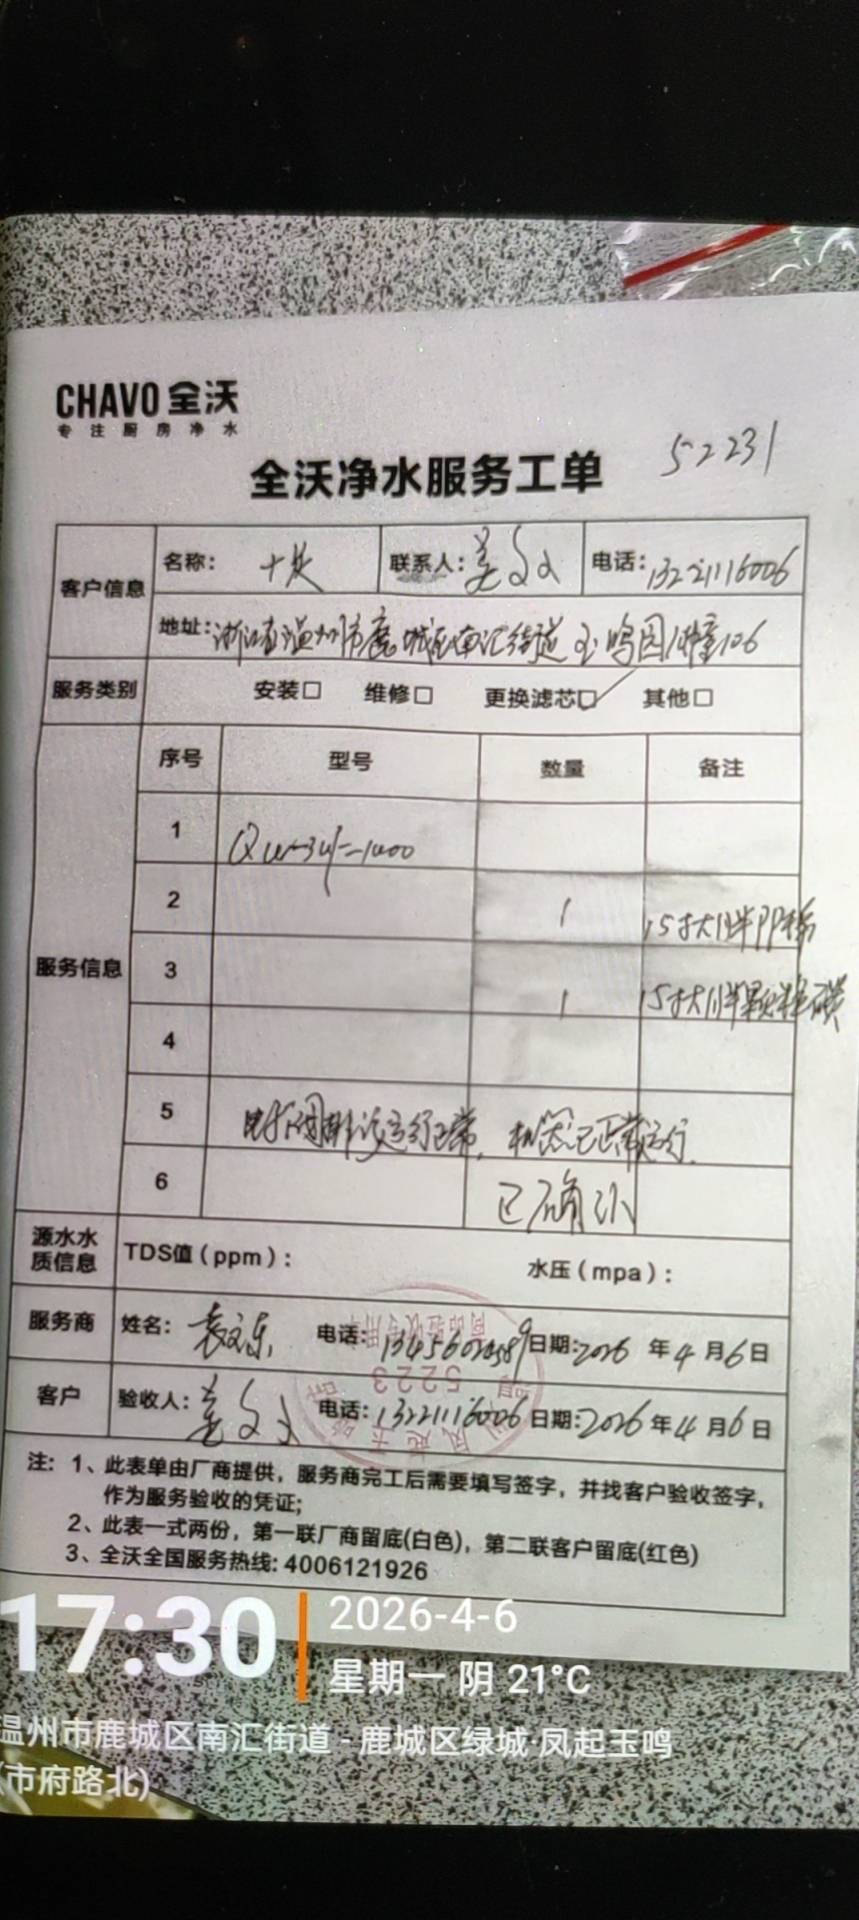 CHAVO 全沃
专注厨房净水
52231
全沃净水服务工单
客户信息
名称： 十足 联系人：姜 电话：13221116006
地址：浙江省温州市鹿城区南汇街道玉鸣园 106
服务类别 安装□ 维修□ 更换滤芯☑ 其他□
服务信息
序号 型号 数量 备注
1
2 1 15寸大胖PP棉
3 1 15寸大胖颗粒碳
4
5 运行正常，机器已正常运行
6 已确认
源水水质信息 TDS值（ppm）： 水压（mpa）：
服务商 姓名：袁文东 电话： 日期：2026 年 4 月 6 日
5223
商品验收专用章
客户 验收人：姜 电话：13221116006 日期：2026 年 4 月 6 日
注：1、此表单由厂商提供，服务商完工后需要填写签字，并找客户验收签字，
作为服务验收的凭证；
2、此表一式两份，第一联厂商留底(白色)，第二联客户留底(红色)
3、全沃全国服务热线：4006121926
17:30
2026-4-6
星期一 阴 21°C
温州市鹿城区南汇街道 - 鹿城区绿城·凤起玉鸣
(市府路北)